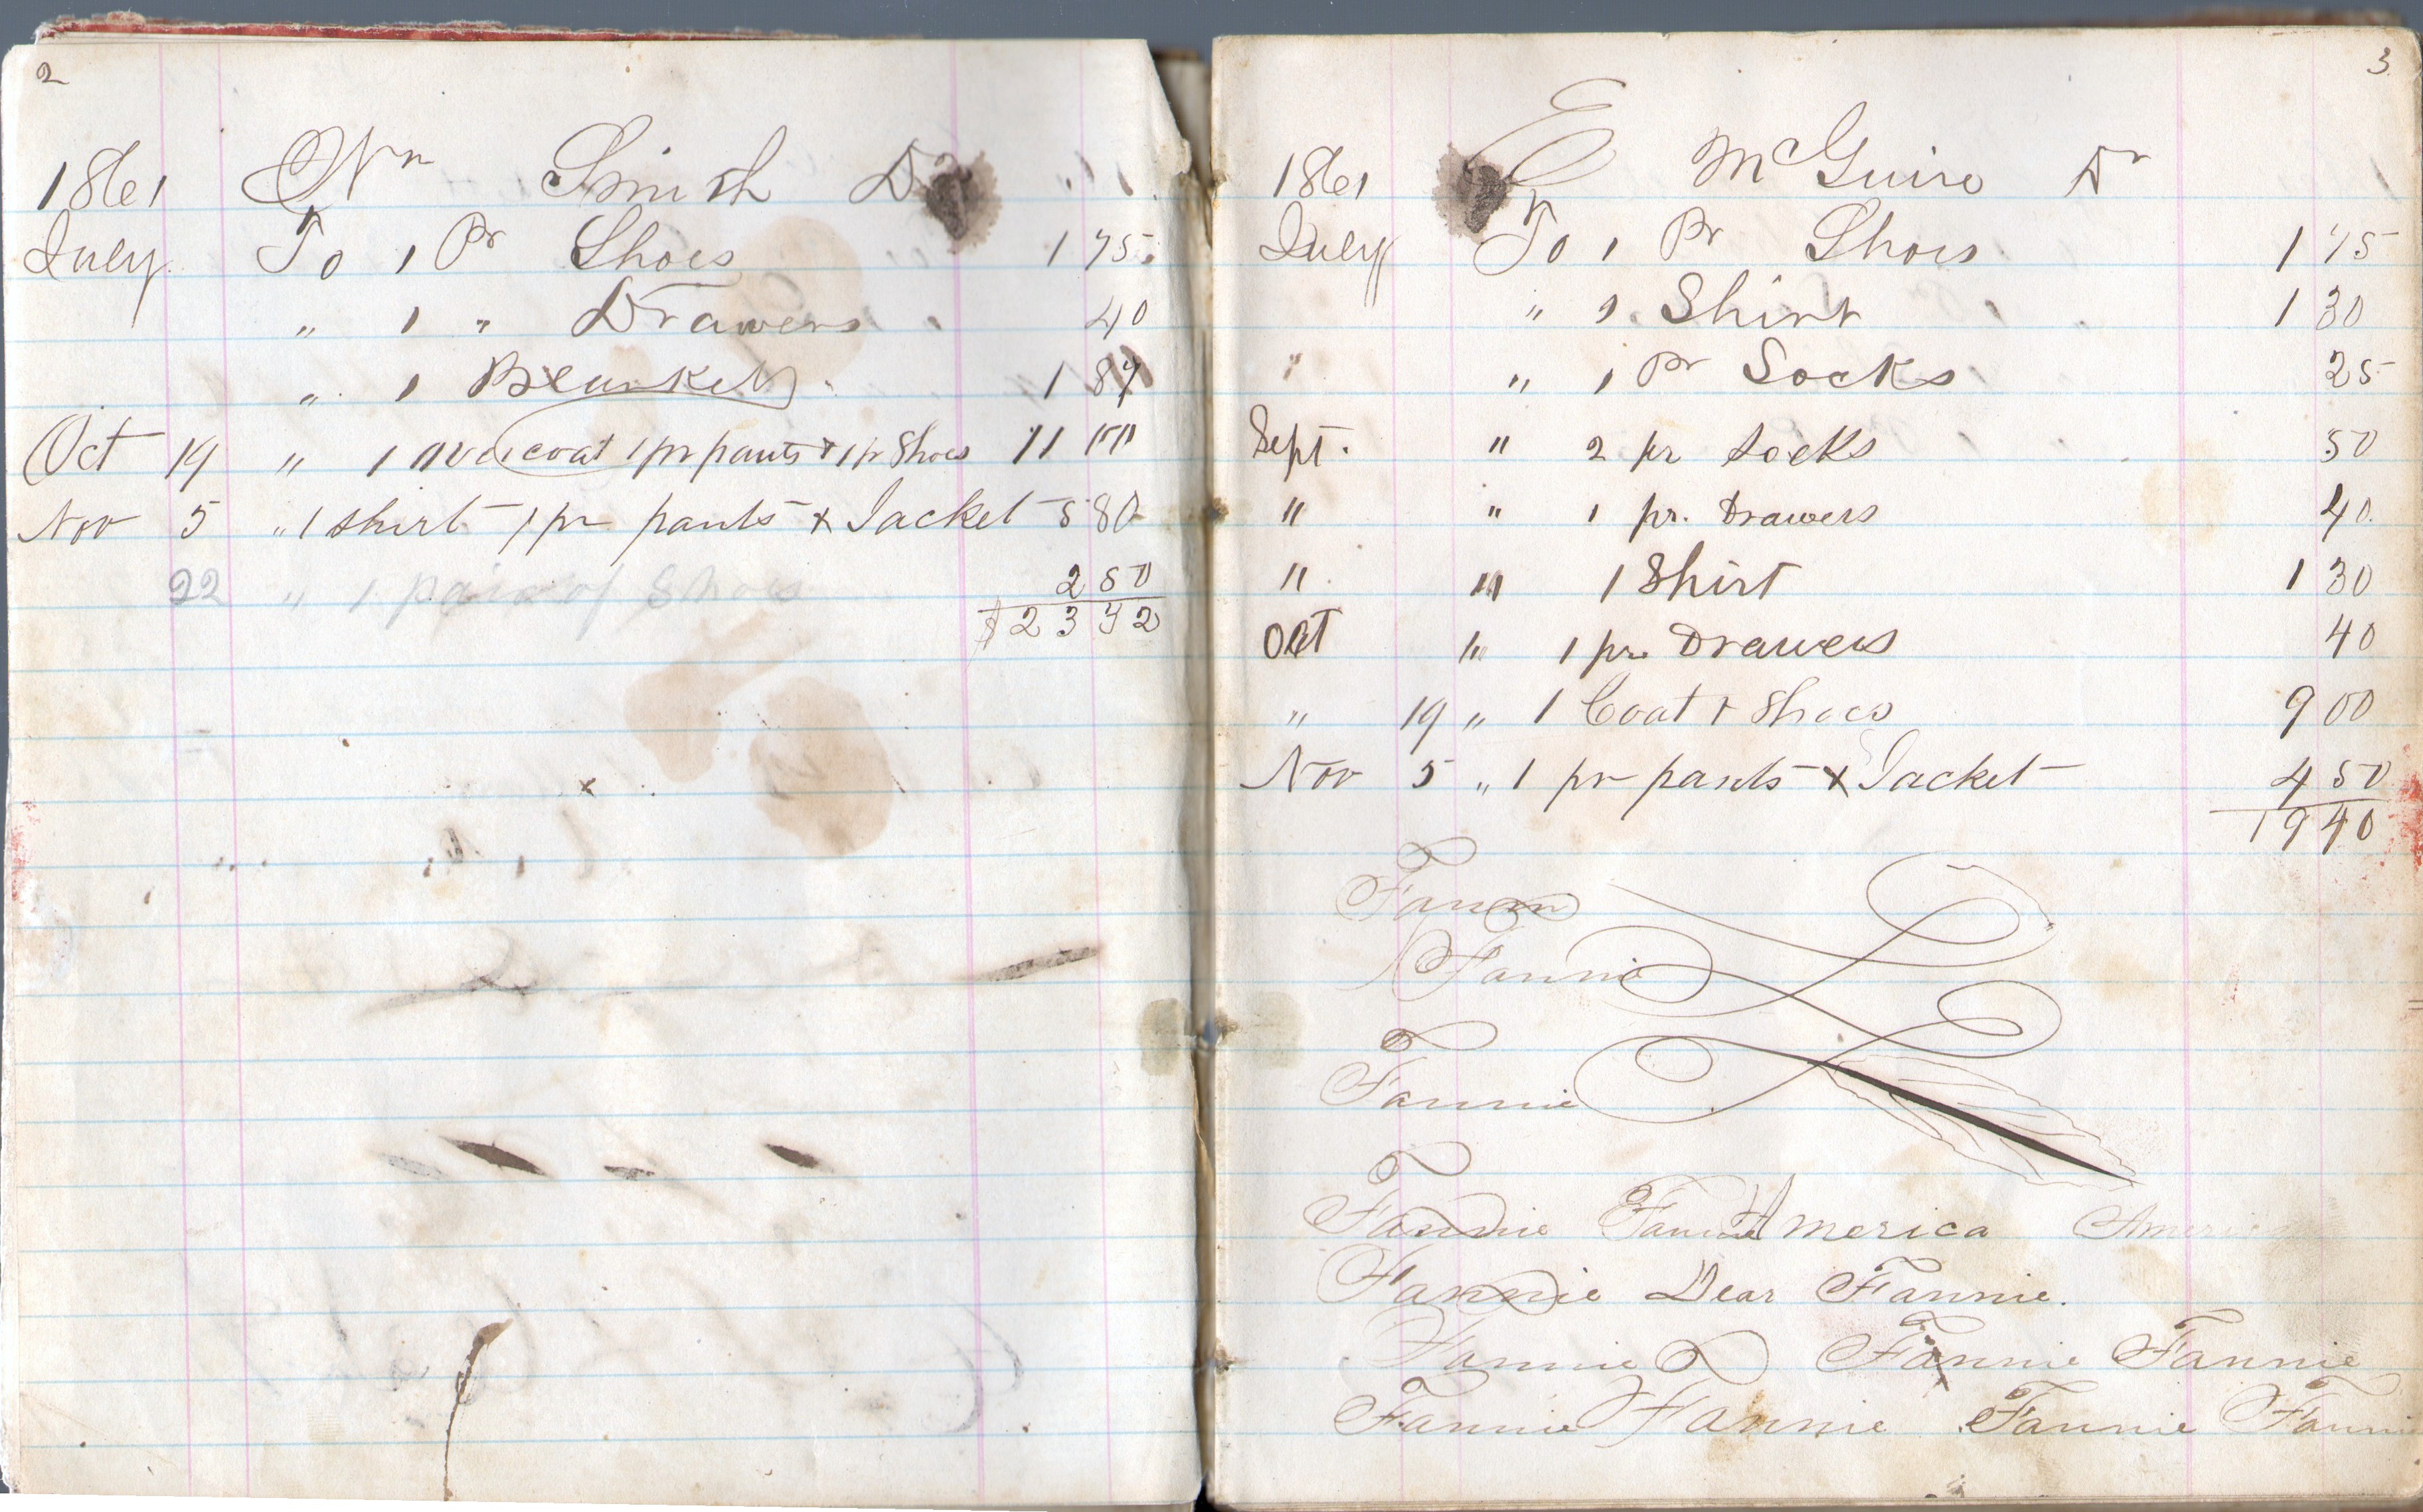 2
1861 Wm Smith Dr
July To 1 Pr Shoes 1 75
" 1 " Drawers 40
" 1 Blanket 1 87
Oct 19 " 1 overcoat 1 pr pants & 1 pr Shoes 11 00
Nov 5 " 1 shirt 1 pr pants & Jacket 5 80
22 " 1 pair of Shoes 2 50
$23 32
3
1861 E McGuire Dr
July To 1 Pr Shoes 1 75
" 1 Shirt 1 30
" " 1 Pr Socks 25
Sept. " 2 pr Socks 50
" " 1 pr. Drawers 40
" " 1 Shirt 1 30
Oct " 1 pr Drawers 40
" 19 " 1 Coat & Shoes 9 00
Nov 5 " 1 pr pants & Jacket 4 50
19 40
Fannie
Fannie
Fannie America America
Fannie Dear Fannie.
Fannie Fannie Fannie
Fannie Fannie Fannie Fannie